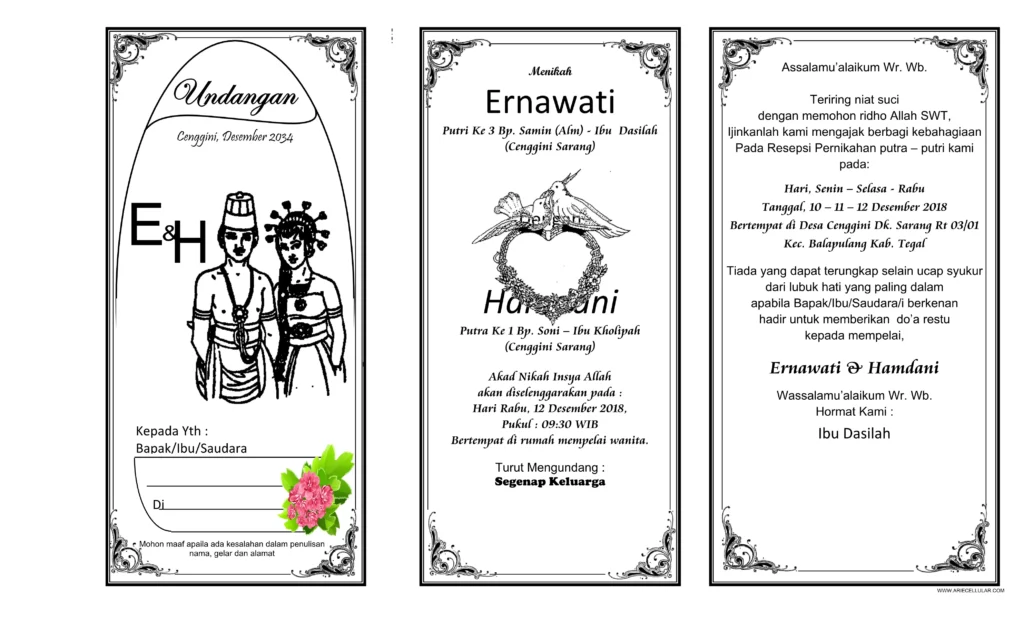 Undangan
Cenggini, Desember 2034
E&H
Kepada Yth :
Bapak/Ibu/Saudara
Di
Mohon maaf apaila ada kesalahan dalam penulisan
nama, gelar dan alamat
Menikah
Ernawati
Putri Ke 3 Bp. Samin (Alm) - Ibu Dasilah
(Cenggini Sarang)
Dengan
Hamdani
Putra Ke 1 Bp. Soni – Ibu Kholipah
(Cenggini Sarang)
Akad Nikah Insya Allah
akan diselenggarakan pada :
Hari Rabu, 12 Desember 2018,
Pukul : 09:30 WIB
Bertempat di rumah mempelai wanita.
Turut Mengundang :
Segenap Keluarga
Assalamu’alaikum Wr. Wb.
Teriring niat suci
dengan memohon ridho Allah SWT,
Ijinkanlah kami mengajak berbagi kebahagiaan
Pada Resepsi Pernikahan putra – putri kami
pada:
Hari, Senin – Selasa - Rabu
Tanggal, 10 – 11 – 12 Desember 2018
Bertempat di Desa Cenggini Dk. Sarang Rt 03/01
Kec. Balapulang Kab. Tegal
Tiada yang dapat terungkap selain ucap syukur
dari lubuk hati yang paling dalam
apabila Bapak/Ibu/Saudara/i berkenan
hadir untuk memberikan do’a restu
kepada mempelai,
Ernawati & Hamdani
Wassalamu’alaikum Wr. Wb.
Hormat Kami :
Ibu Dasilah
WWW.ARIECELLULAR.COM